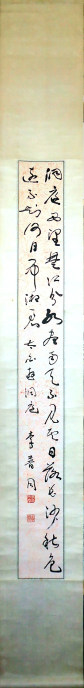 洞庭西望楚江分水盡南天不見雲日落長沙秋色
遠不知何日弔湘君 太白遊洞庭
李普同